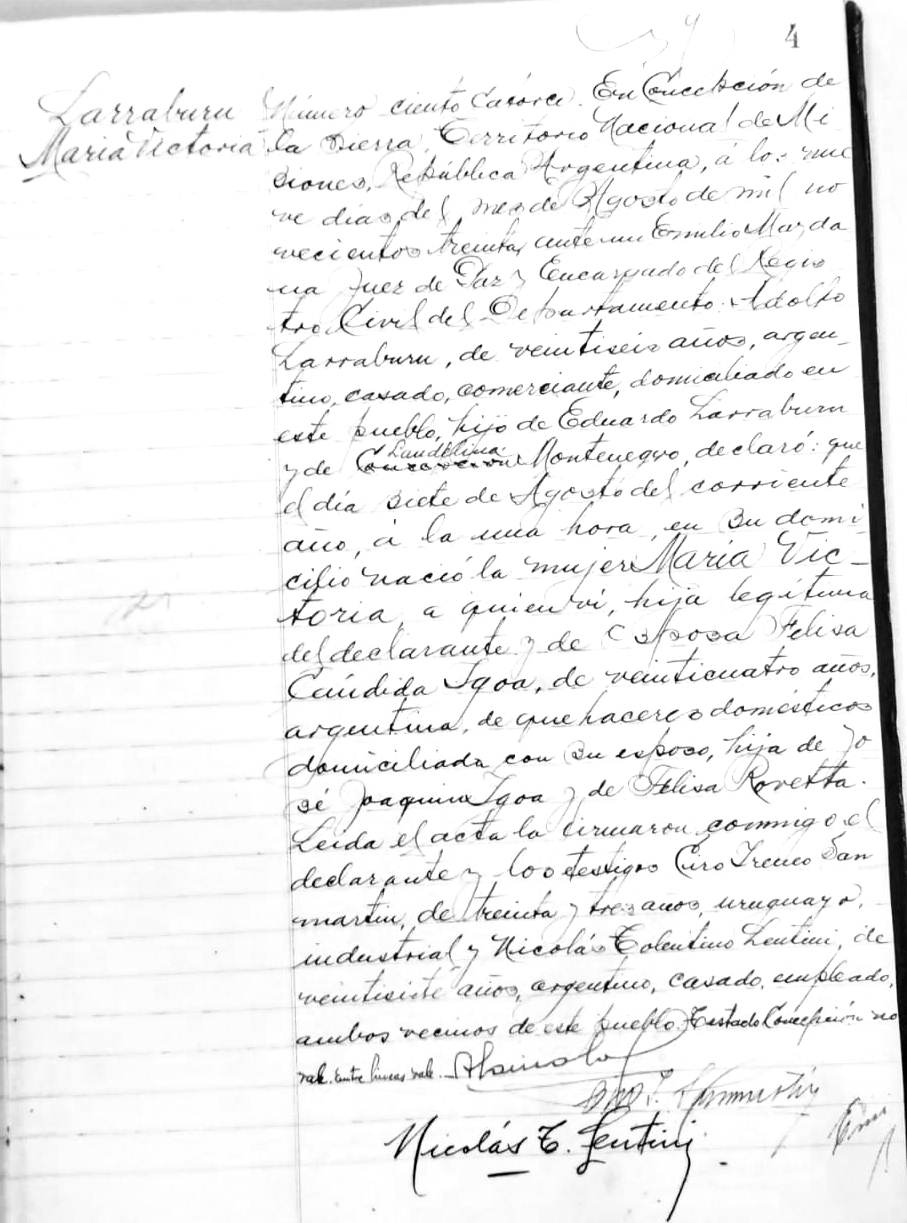 4
Larraburu
Maria Victoria
Número ciento catorce. En Concepción de
la Sierra, Territorio Nacional de Mi
siones, República Argentina, á los nue
ve dias del mes de Agosto de mil no
vecientos treinta, ante mi Emilio
na Juez de Paz y Encargado del Regis
tro Civil del Departamento: Adolfo
Larraburu, de veintiseis años, argen_
tino, casado, comerciante, domiciliado en
este pueblo, hijo de Eduardo Larraburu
Laudelina
y de Concepcion Montenegro, declaró: que
el día siete de Agosto del corriente
año, á la una hora, en su domi
cilio nació la mujer Maria Vic_
toria, a quien vi, hija legítima
del declarante y de esposa Felisa
Cándida Igoa, de veinticuatro años,
argentina, de quehaceres domésticos
domiciliada con su esposo, hija de Jo
sé Joaquin Igoa y de Felisa Rovetta.
Leida el acta la firmaron conmigo el
declarante y los testigos Ciro Ireneo San
martin, de treinta y tres años, uruguayo,
industrial y Nicolás Tolentino Lentini, de
veintisiete años, argentino, casado, empleado,
ambos vecinos de este pueblo. Testado Concepción no
vale. Entre lineas vale.
Nicolás T. Lentini.